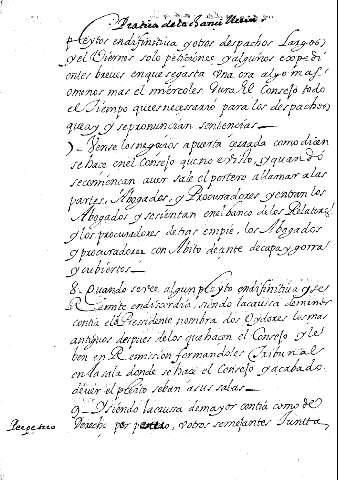 Pratica de la
pleytos en difinitiva y otros despachos Largos,
y el Viernes solo peticiones y algunos expedi
entes breves en que se gasta Una ora algo mas
o menos mas el miercoles Dura el Consejo todo
el Tiempo que es necessario para los despachos
que ay y se pronuncian sentencias
7 - Vense los negocios a puerta cerrada como dicen
se hace en el Consejo que no e visto, y quando
se comiencan a ver sale el portero a llamar a las
partes, Abogados, y Procuradores y entran los
Abogados y se sientan en el banco de los Relatores
y los procuradores detras em pie, los Abogados
y procuradores con Abito decente de capa y gorra
y cubiertos
8. Quando se vee algun pleyto en difinitiva y se
Remite en discordia, siendo la causa de menor
contia el Presidente nombra dos Oydores los mas
antiguos despues de los que hacen el Consejo y le
ben en Remission formandoles Tribunal
en la sala donde se hace el Consejo y acabado
de ver el pleito se ban a sus salas
9 - Y siendo la causa de mayor contia como de
Derecho por votos semejantes Juntta